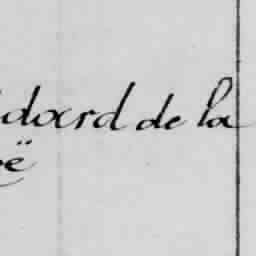 doard de la
oë